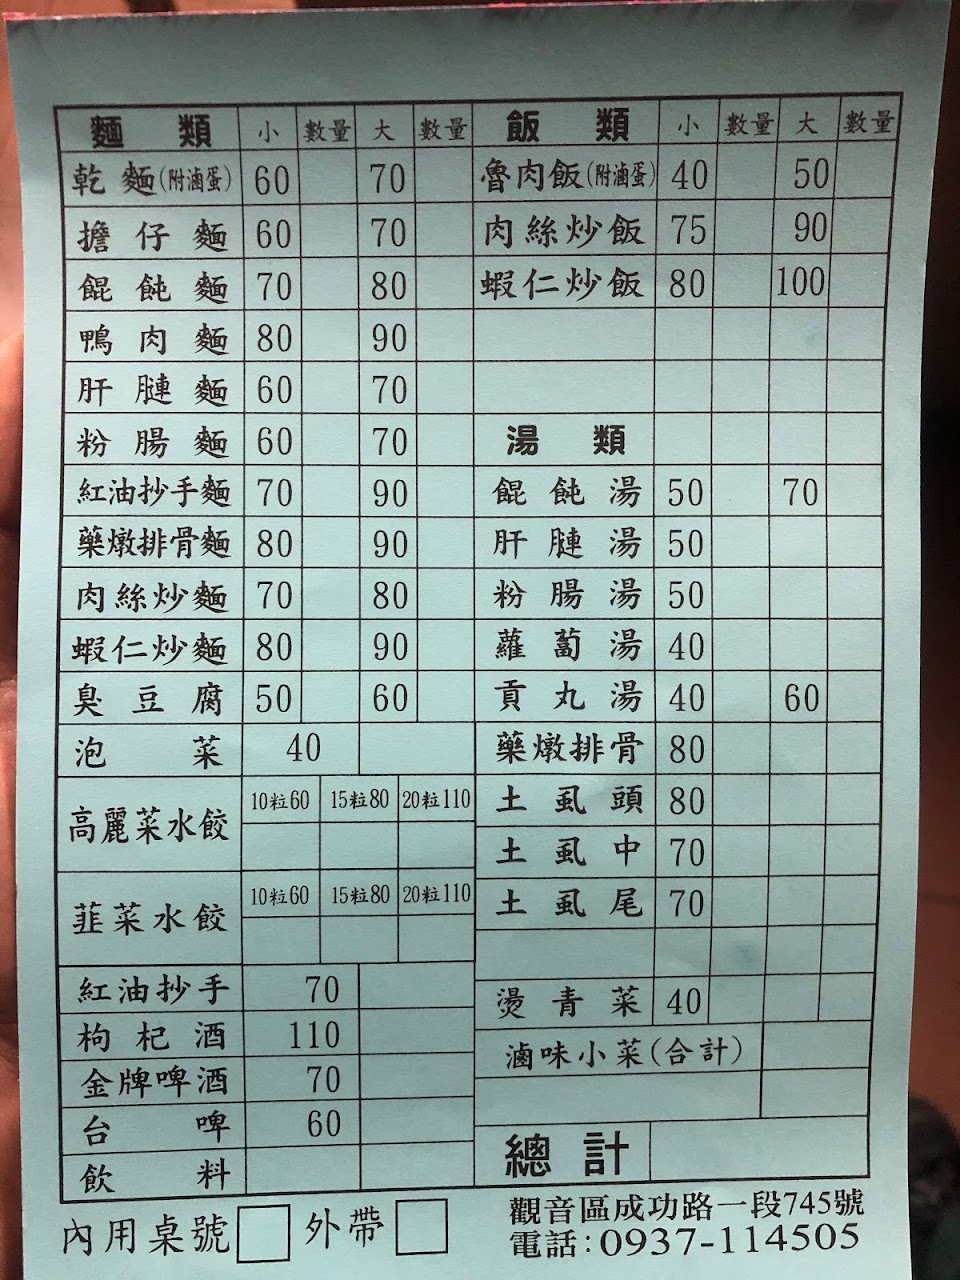 麵類 小 數量 大 數量
乾麵(附滷蛋) 60 70
擔仔麵 60 70
餛飩麵 70 80
鴨肉麵 80 90
肝膁麵 60 70
粉腸麵 60 70
紅油抄手麵 70 90
藥燉排骨麵 80 90
肉絲炒麵 70 80
蝦仁炒麵 80 90
臭豆腐 50 60
泡菜 40
高麗菜水餃 10粒60 15粒80 20粒110
韮菜水餃 10粒60 15粒80 20粒110
紅油抄手 70
枸杞酒 110
金牌啤酒 70
台啤 60
飲料
飯類 小 數量 大 數量
魯肉飯(附滷蛋) 40 50
肉絲炒飯 75 90
蝦仁炒飯 80 100
湯類
餛飩湯 50 70
肝膁湯 50
粉腸湯 50
蘿蔔湯 40
貢丸湯 40 60
藥燉排骨 80
土虱頭 80
土虱中 70
土虱尾 70
燙青菜 40
滷味小菜(合計)
總計
內用桌號 外帶
觀音區成功路一段745號
電話:0937-114505